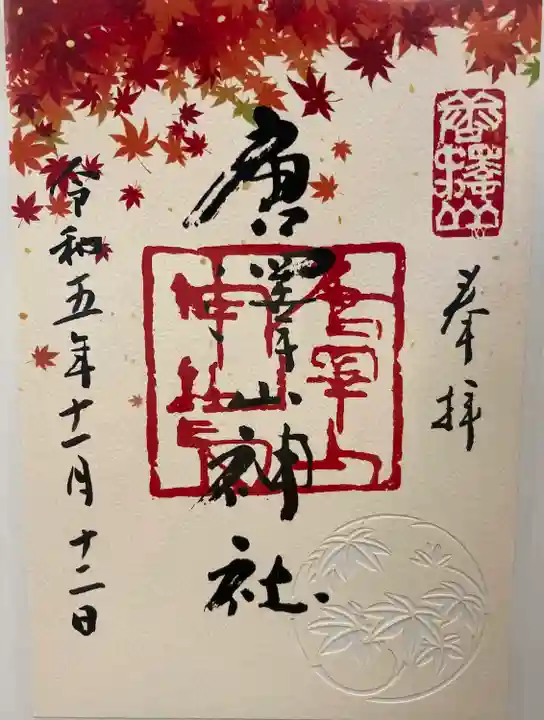 奉拝
唐澤山神社
令和五年十一月十二日
唐澤山